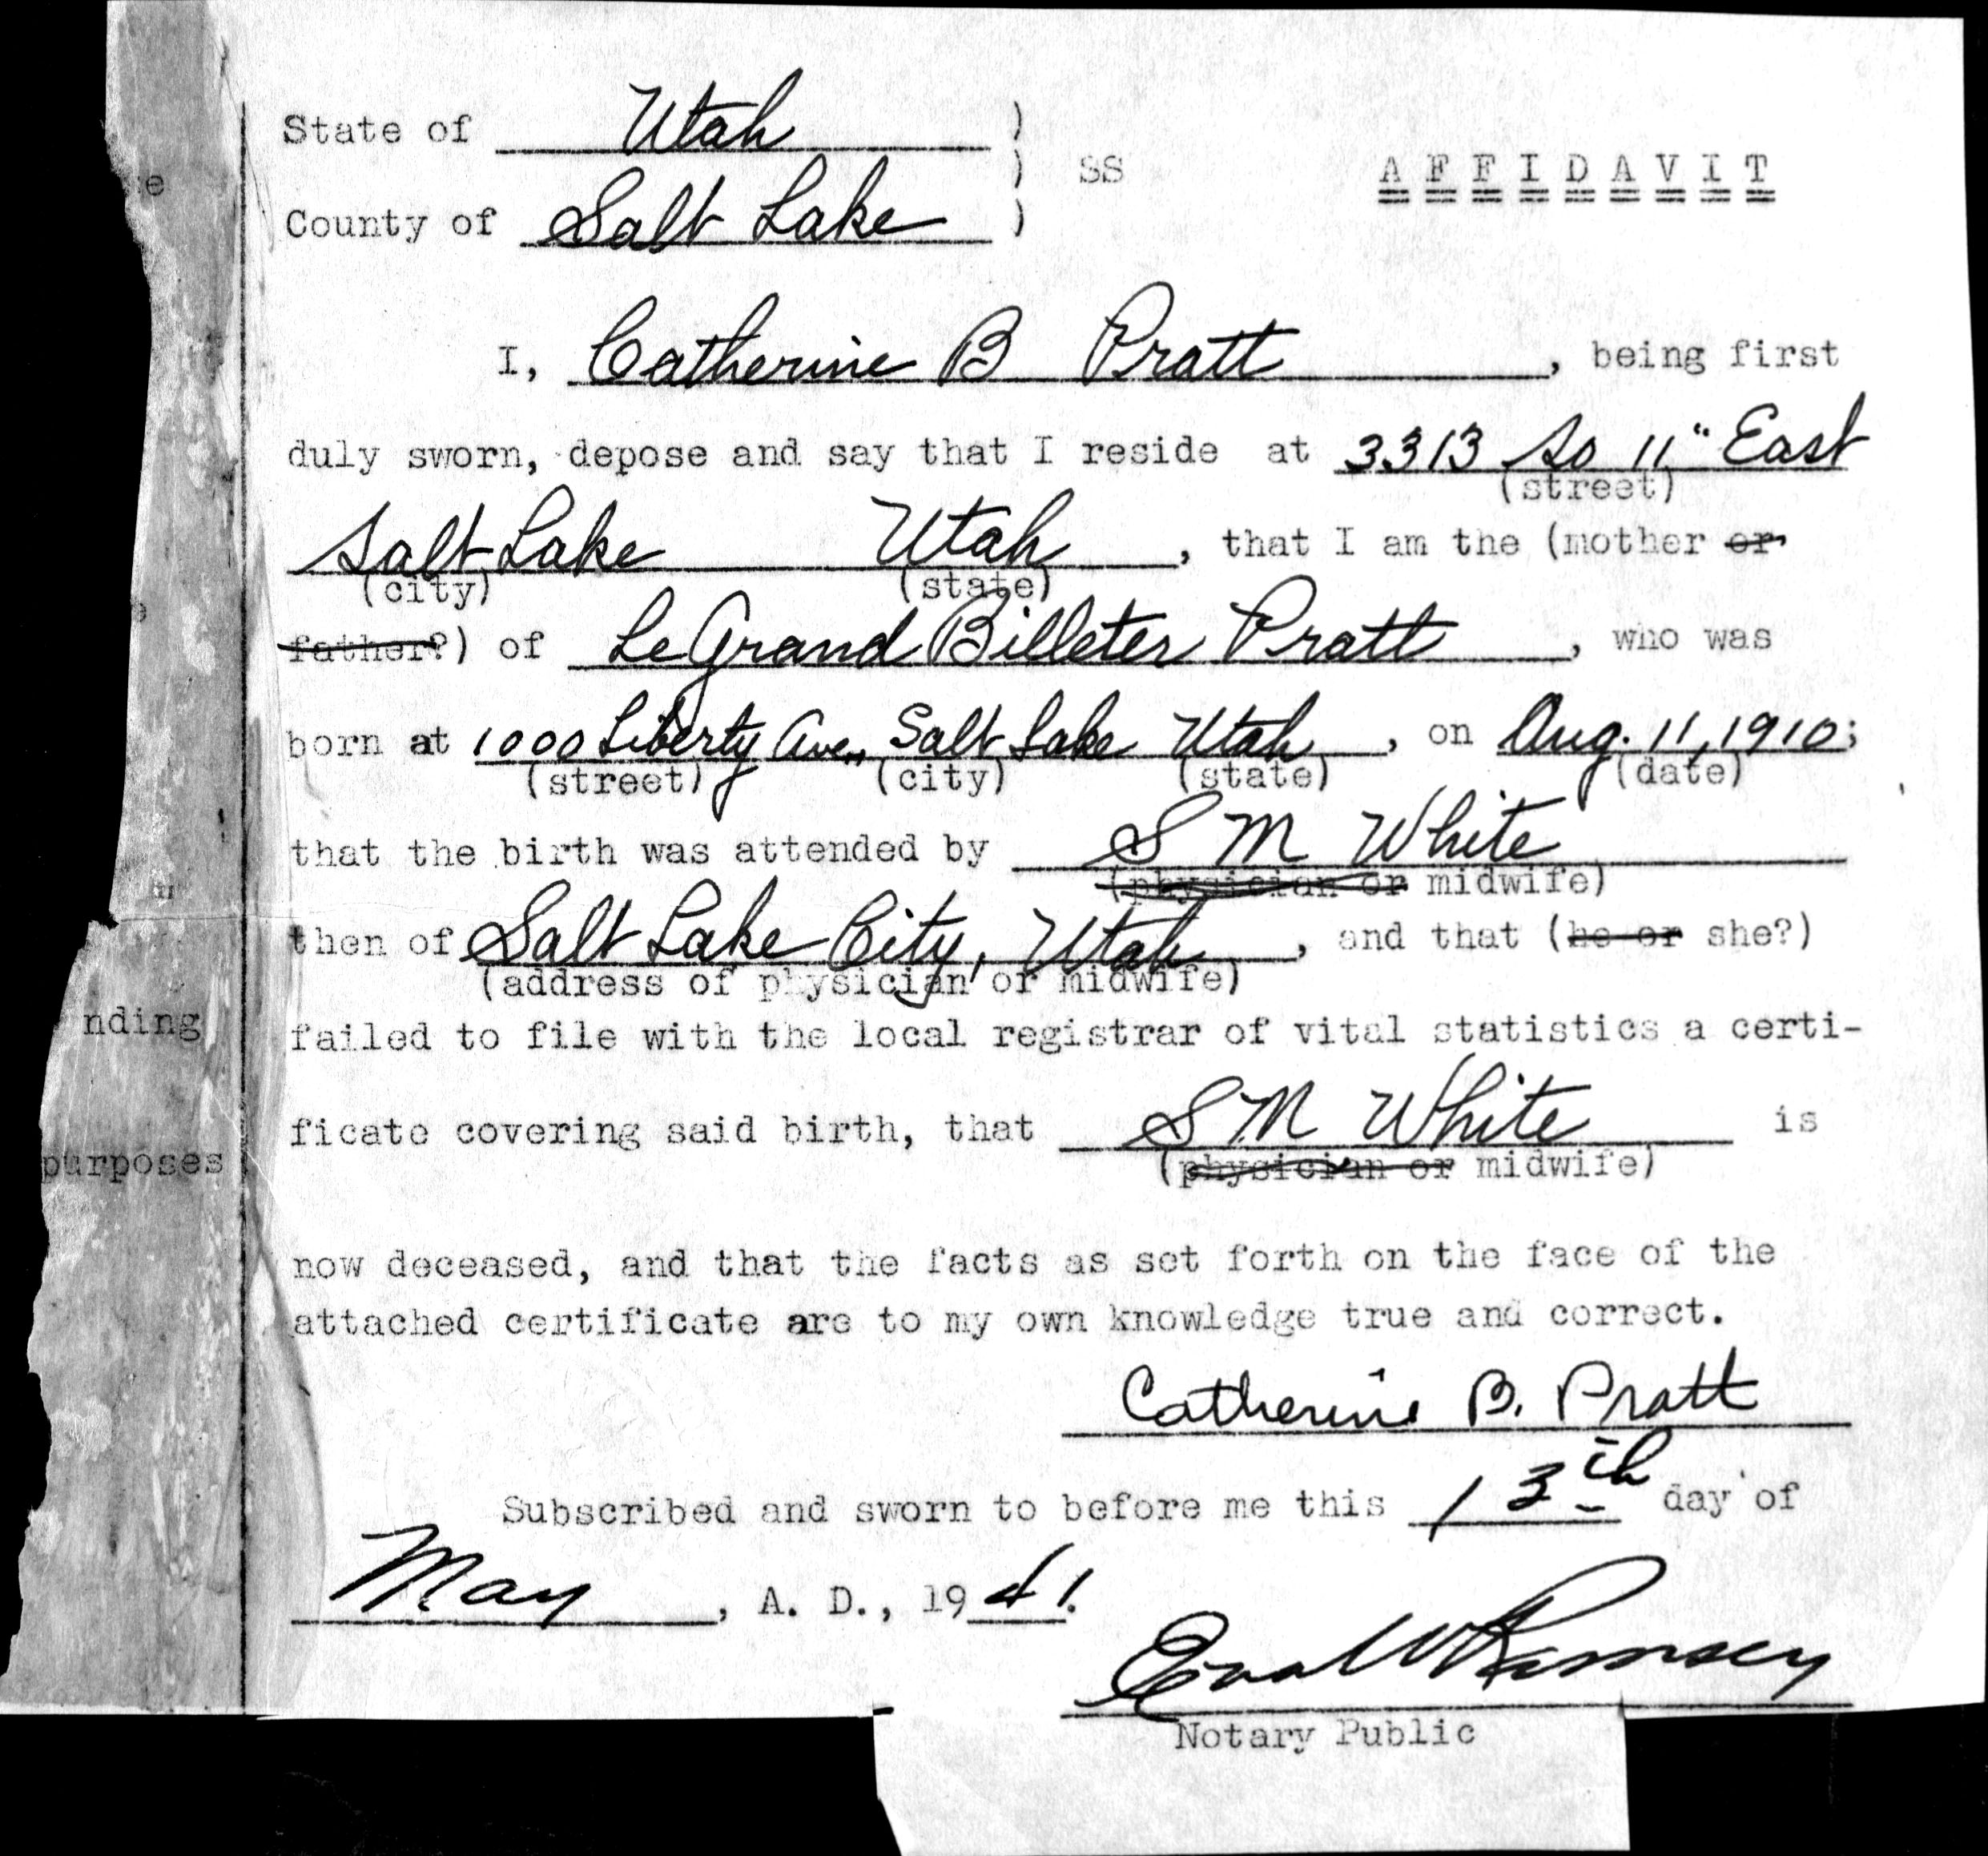 State of Utah )
) SS A F F I D A V I T
County of Salt Lake )
I, Catherine B Pratt, being first
duly sworn, depose and say that I reside at 3313 So 11" East
(street)
Salt Lake Utah, that I am the (mother or
(city) (state)
father?) of LeGrand Billeter Pratt, who was
born at 1000 Liberty Ave., Salt Lake Utah, on Aug. 11, 1910;
(street) (city) (state) (date)
that the birth was attended by S M White
(physician or midwife)
then of Salt Lake City, Utah, and that (he or she?)
(address of physician or midwife)
failed to file with the local registrar of vital statistics a certi-
ficate covering said birth, that S.M White is
(physician or midwife)
now deceased, and that the facts as set forth on the face of the
attached certificate are to my own knowledge true and correct.
Catherine B. Pratt
Subscribed and sworn to before me this 13th day of
May, A. D., 1941.
W Ramsey
Notary Public
nding
purposes